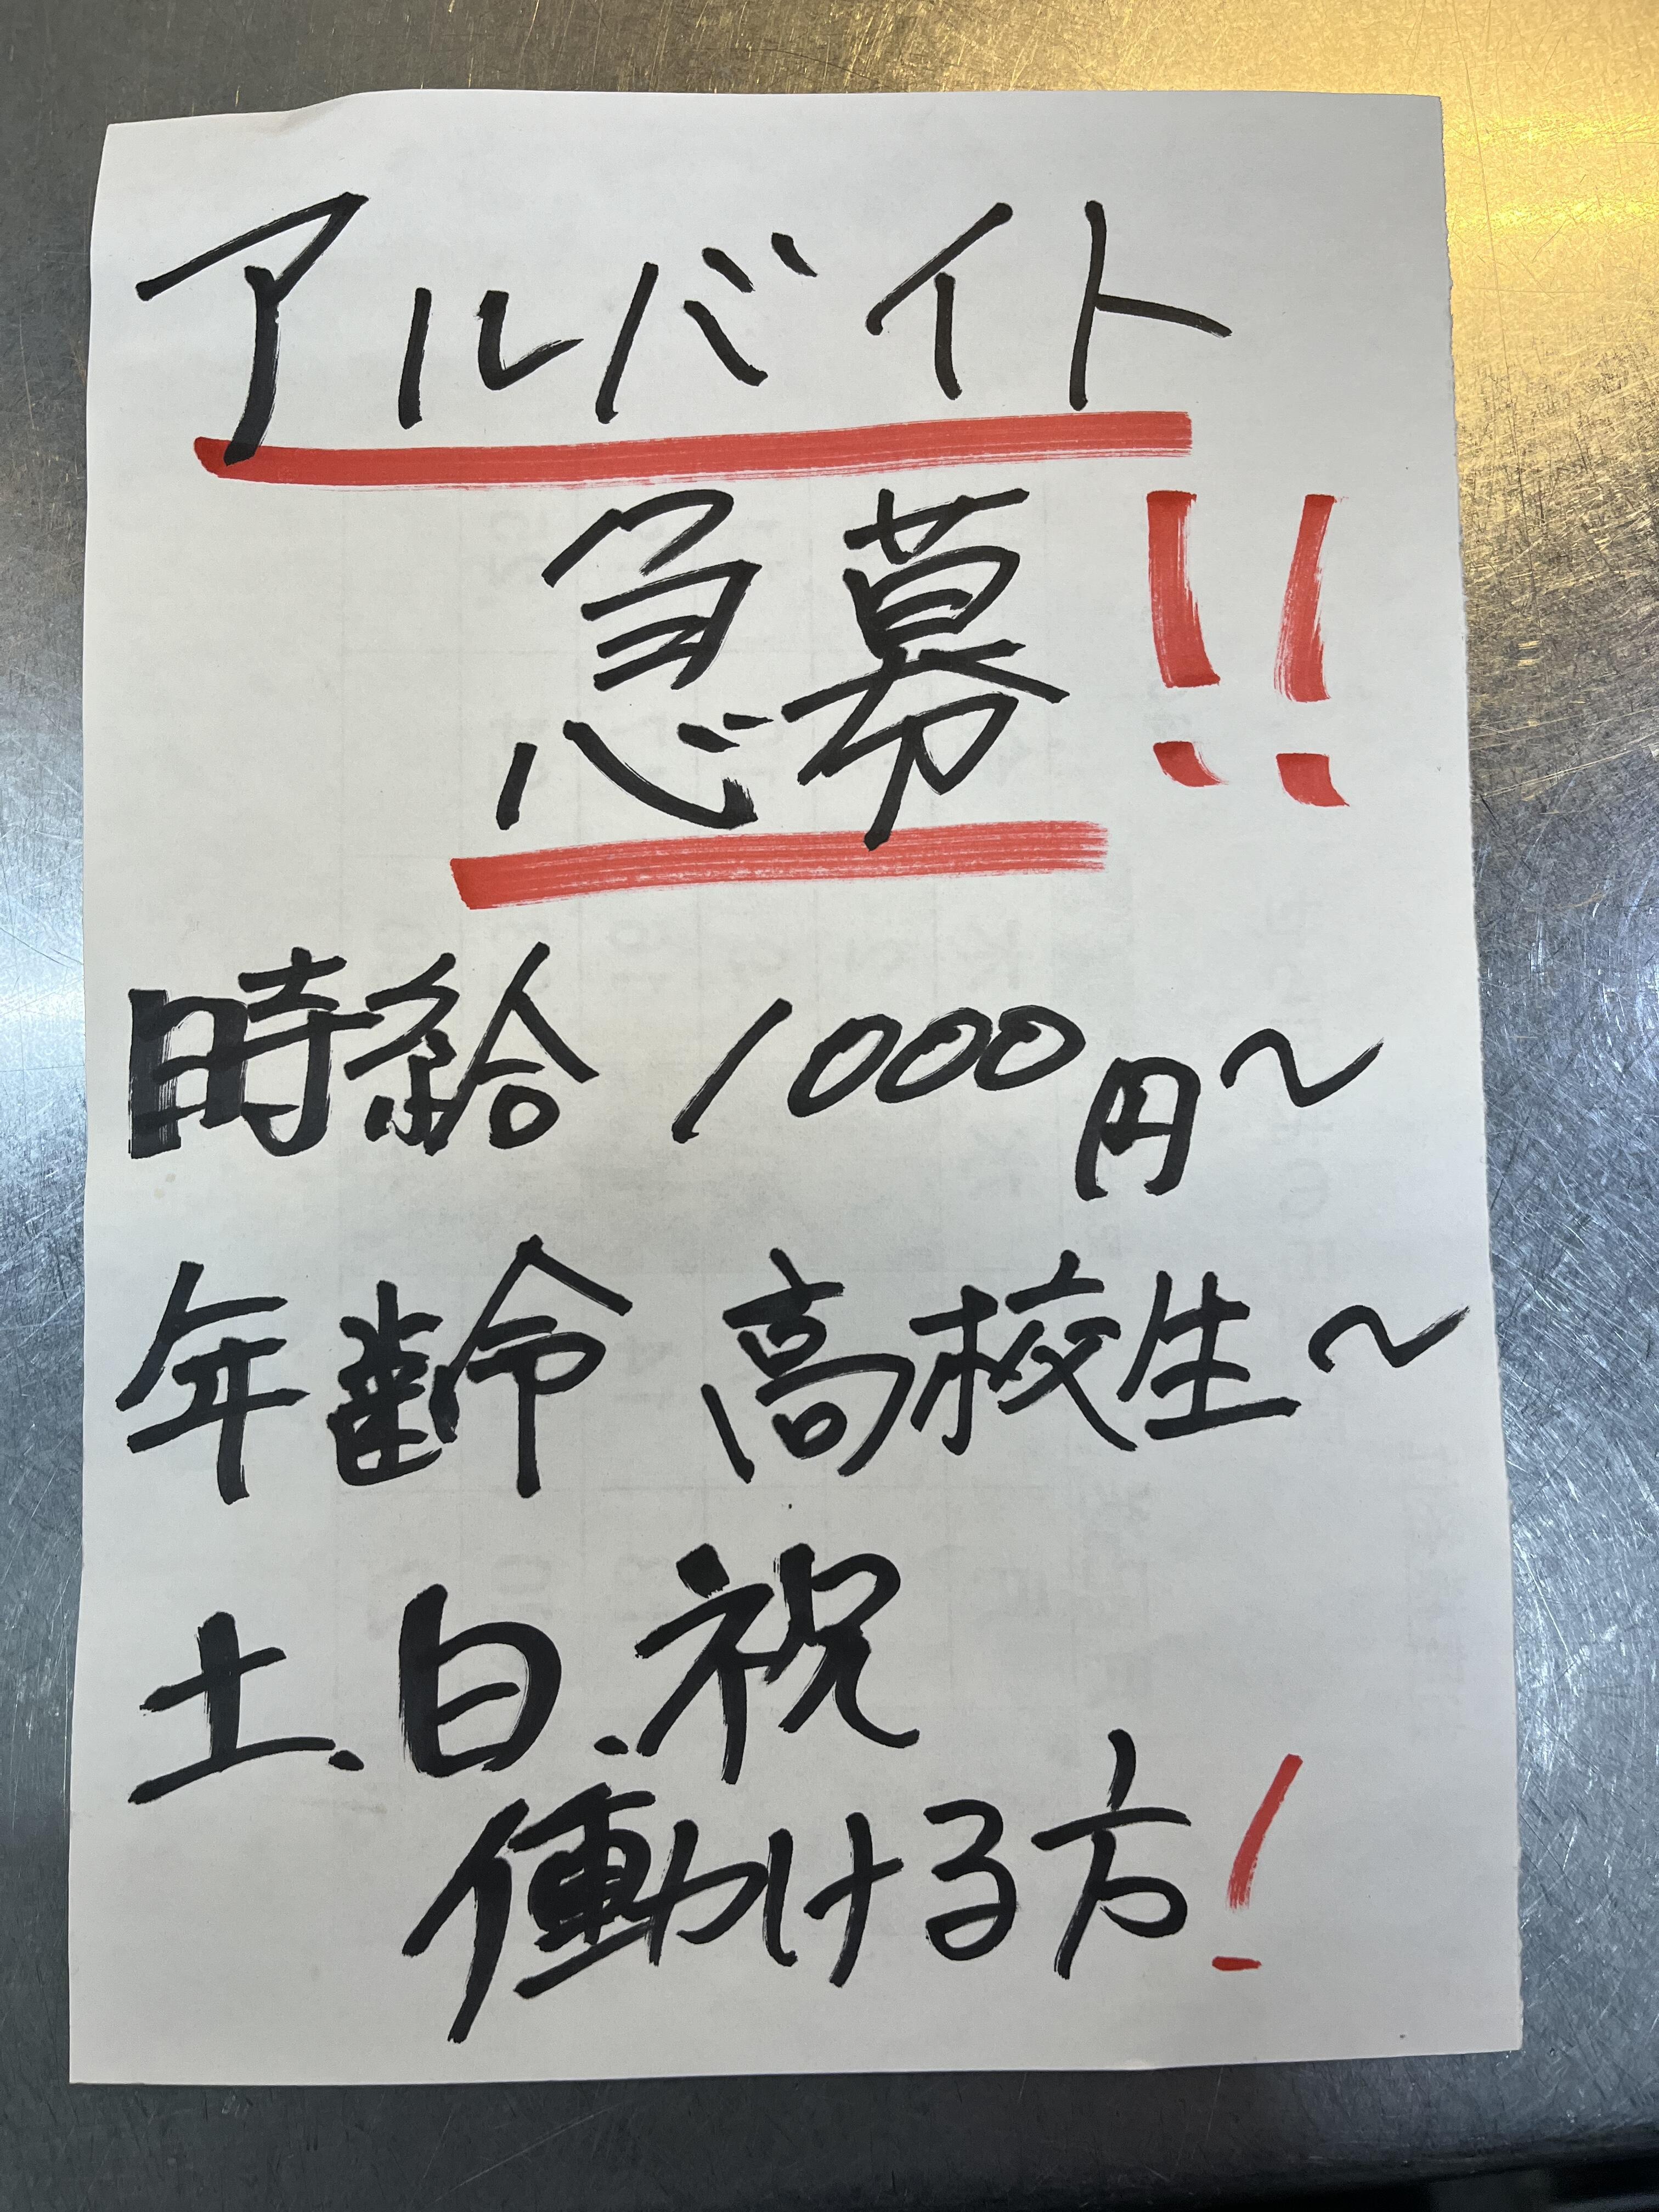 アルバイト
急募!!
時給 1000円～
年齢 高校生～
土、日、祝
働ける方!